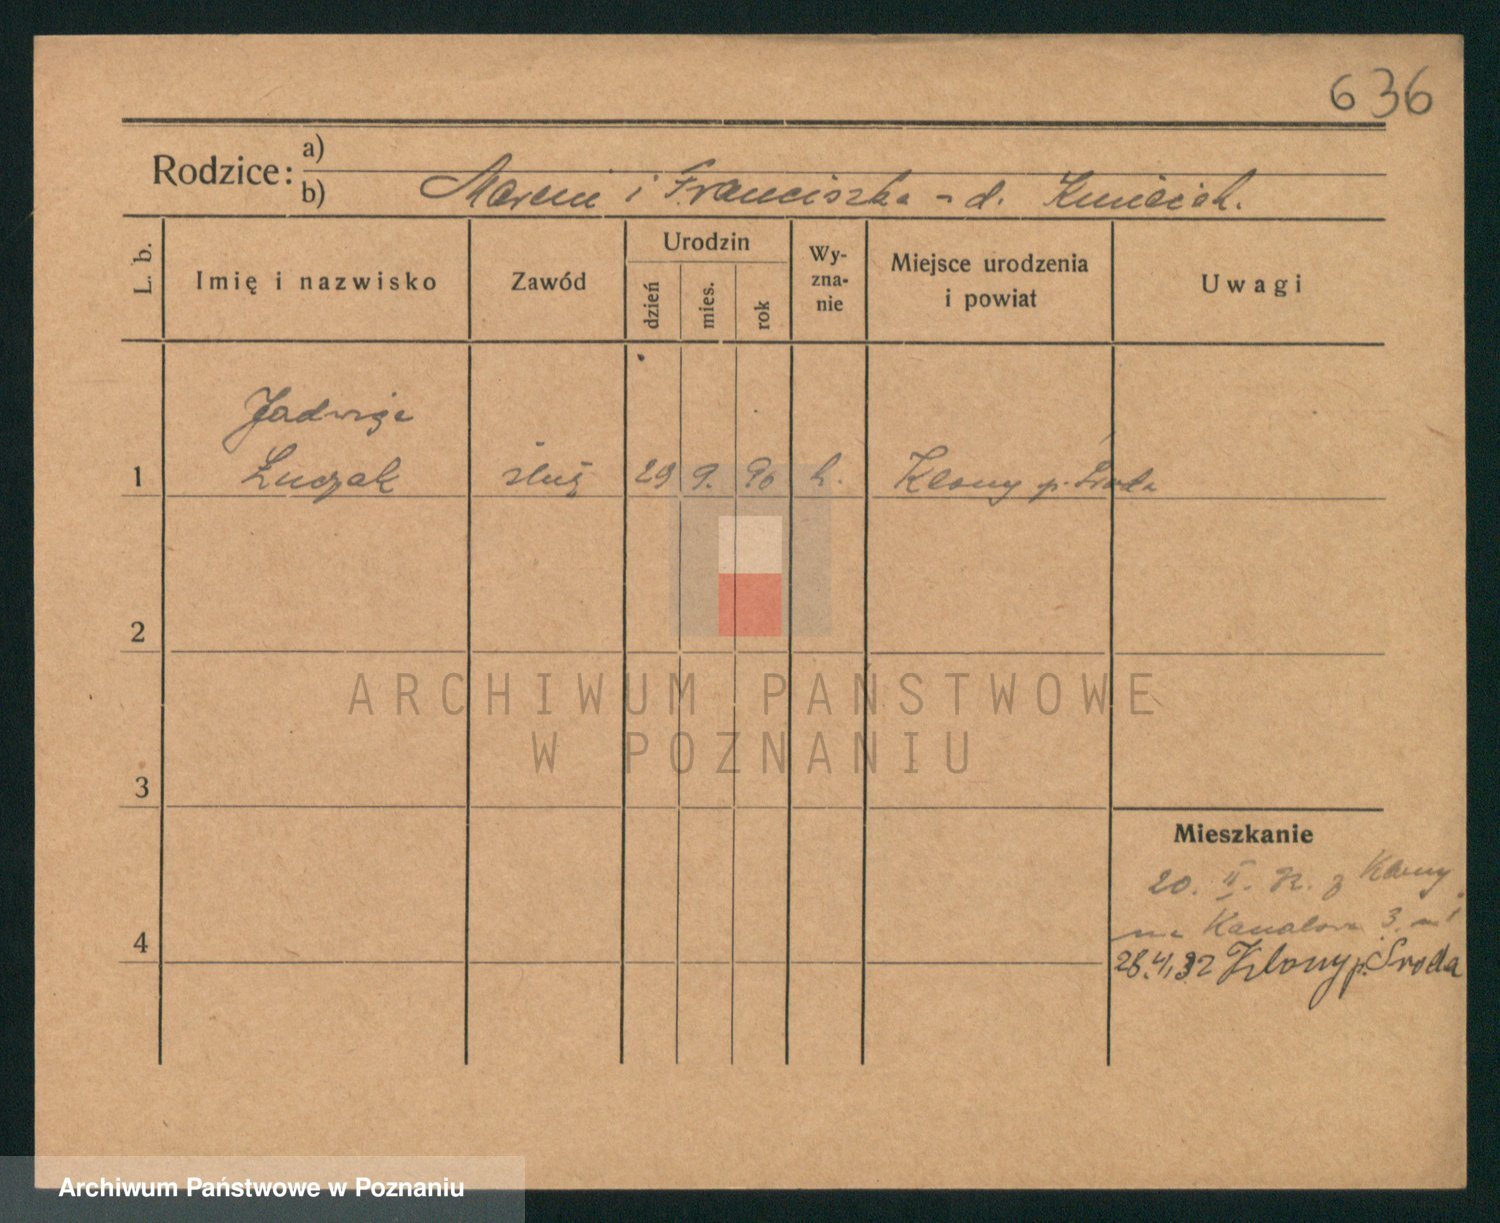 636
Rodzice:
a)
b) Marcin i Franciszka - d. Kmieciak.
L. b.
Imię i nazwisko
Zawód
Urodzin
dzień
mies.
rok
Wy-
zna-
nie
Miejsce urodzenia
i powiat
Uwagi
Jadwiga
1 Łuczak służ 29 9. 90 k. Klony p. Środa
2
3
4
ARCHIWUM PAŃSTWOWE
W POZNANIU
Mieszkanie
20. II. z Klony
na Kanałowa 3. m 1
28.4.32 Klony p. Środa
Archiwum Państwowe w Poznaniu